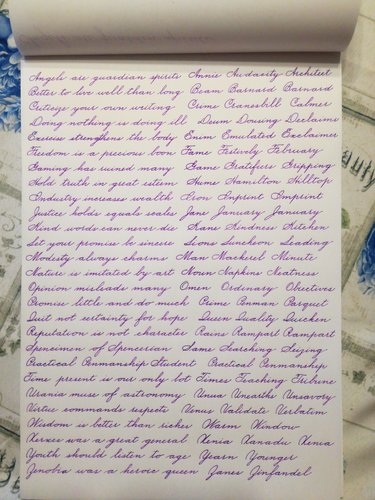 Angels are guardian spirits Annie Audacity Architect
Better to live well than long Beam Barnard Barnard
Criticize your own writing Crime Cranesbill Calmer
Doing nothing is doing ill Drum Dowing Declaims
Exercise strengthens the body Enim Emulated Exclaimer
Freedom is a precious boon Fame Festively February
Gaming has ruined many Game Gratefiers Gripping
Hold truth in great esteem Hume Hamilton Hilltop
Industry increases wealth Iron Inprint Imprint
Justice holds equals scales Jane January January
Kind words can never die Kans Kindness Kitchen
Let your promise be sincere Lions Luncheon Leading
Modesty always charms Man Mackerel Minute
Nature is imitated by art Noun Napkins Neatness
Opinion misleads many Omen Ordinary Objectives
Promise little and do much Prime Penman Parquet
Quit not certainty for hope Queen Quality Quicken
Reputation is not character Rains Rampart Rampart
Specimen of Spencerian Same Searching Seizing
Practical Penmanship Student Practical Penmanship
Time present is our only lot Times Teaching Tribune
Urania muse of astronomy Unua Unearths Unsavory
Virtue commands respects Venus Validate Verbatim
Wisdom is better than riches Warm Window
Xerxes was a great general Xenia Xanadu Xenia
Youth should listen to age Yearn Younger
Zenobia was a heroic queen Zanes Zinfandel